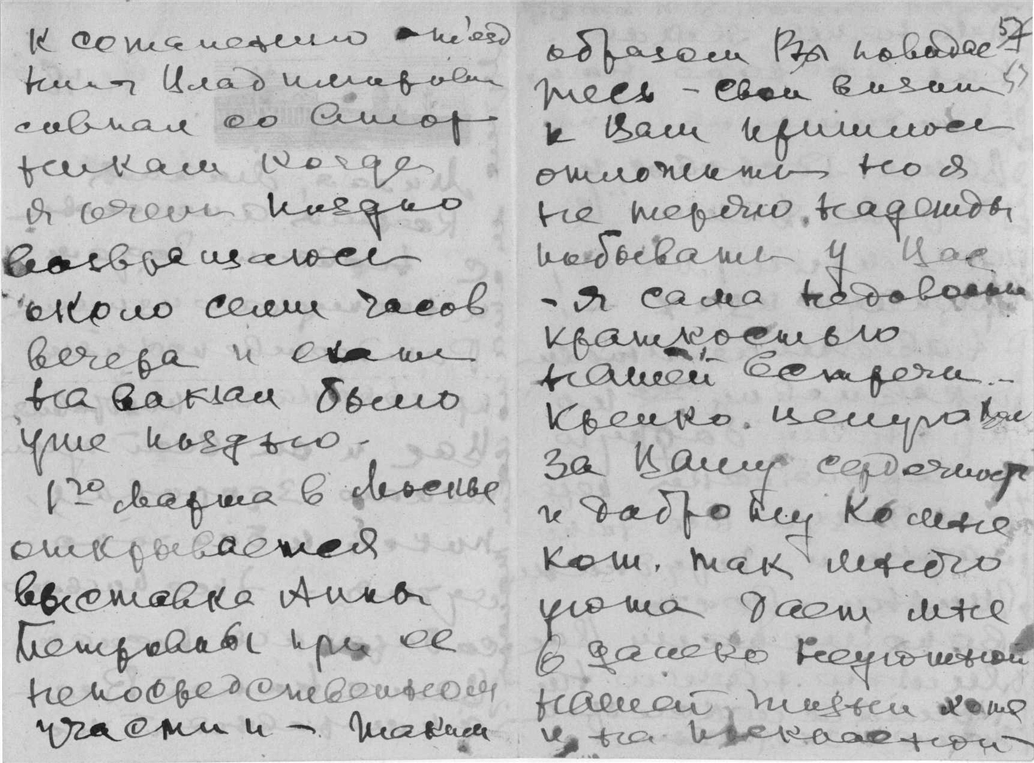 К сожалению отъезд
Владимировны
совпал со втор-
никами когда
я очень поздно
возвращаюсь
около семи часов
вечера и ехать
на вокзал было
уже поздно.
1го Марта в Москве
открывается
выставка Анны
Петровны при ее
непосредственном
участии – таким
57
образом Вы повидае
тесь – свои визит
к Вам пришлось
отложить но я
не теряю надежды
побывать у Вас
– я сама недовольна
краткостью
нашей встречи –
Крепко целую Вас
за Вашу сердечность
и доброту ко мне
кот. так много
уюта дает мне
в далеко неуютной
нашей жизни хотя
и на прекрасной